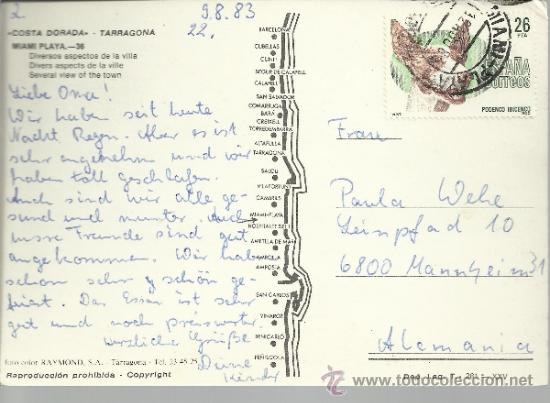 2.
9.8.83
22.
«COSTA DORADA» - TARRAGONA
MIAMI PLAYA.—36
Diversos aspectos de la villa
Divers aspects de la ville
Several view of the town
Liebe Oma!
Wir haben seit heute
Nacht Regen. Aber es ist
sehr angenehm und wir
haben toll geschlafen.
Auch sind wir alle ge-
sund und munter. Auch
unsre Freunde sind gut
angekommen. Wir haben
schon sehr schön ge-
feiert. Das Essen ist sehr
gut und noch preiswerter.
Herzliche Grüße
Deine
Kinder
foto color RAYMOND, S.A. - Tarragona - Tel. 23 45 25
Reproducción prohibida - Copyright
BARCELONA
CUBELLAS
CUNIT
CALAFELL
SAN SALVADOR
COMARRUGA
BARÁ
CREIXELL
TORREDEMBARRA
ALTAFULLA
TARRAGONA
SALOU
VILAFORTUNY
CAMBRILS
MIAMI-PLAYA
HOSPITALET
AMETLLA DE MAR
AMPOLLA
AMPOSTA
SAN CARLOS
VINAROZ
BENICARLO
PEÑISCOLA
26
PTA
ESPAÑA
correos
PODENCO IBICENCO
Frau
Paula Wehe
Leinpfad 10
6800 Mannheim 31
Alemania
Dep. Leg. T. 261 - XXV
todocoleccion.net